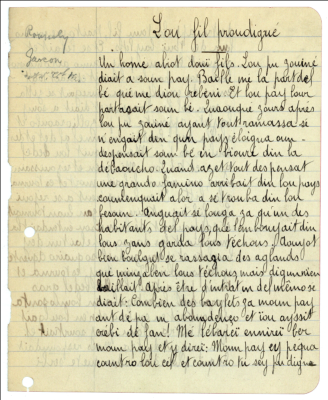 Lou fil proudigué
Un home abot doui fils. Lou pu zouine
diait à soun pay. Baille me la part del
bé que me diou rebeni. Et lou pay lour
partazait soun bé. Quaouque zours après
lou pu zouine ayant tout ramassa si
n'engait den qun pays éloigna oun
despensait soun bé en vioure din la
debaoucho. Quand azet tout despensat
une grando famino arribait din lou pays
coumençait alor a se trouba din lou
besoun. Anguait se louga za qu'un des
habitants del pays, que l'embouyait din
lous zans garda lous téchous. Aouyot
bien boulgut se rassagia des aglands
que minzaben lous téchous mais digun n'en
baillait. Après être rintrat en del mêmo se
diait: Combien des baylets za moun pay
ant de pa in aboundenço et iou ayssit
crèbi de fan! Me lebarei enirei ver
moun pay et y direi: Moun pay ey pequa
countro lou cey et countro tu sey pu digne